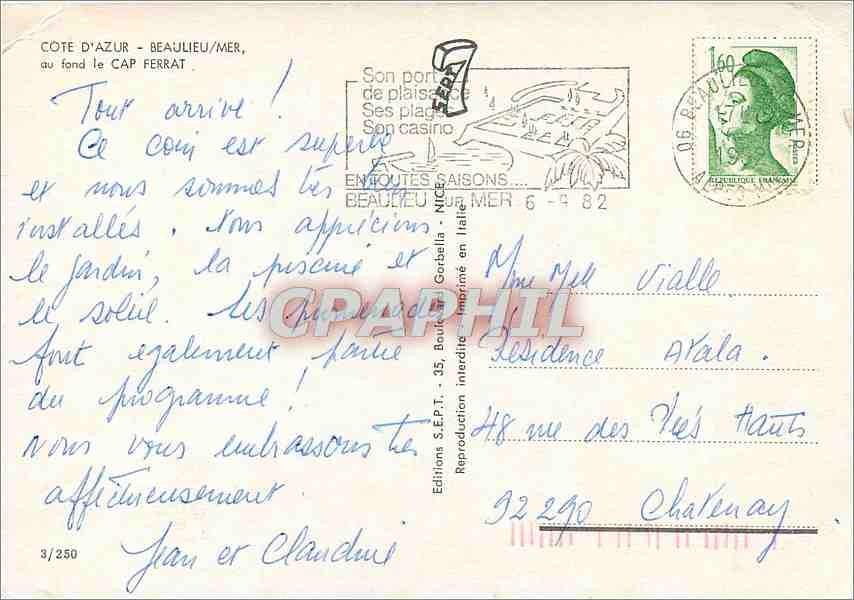 COTE D'AZUR - BEAULIEU/MER,
au fond le CAP FERRAT
Tout arrive !
Ce coin est superbe
et nous sommes très bien
installés. Nous apprécions
le jardin, la piscine et
le soleil. Les promenades
font également partie
du programme !
Nous vous embrassons très
affectueusement.
Jean et Claudine
3/250
SEPT
Son port
de plaisance
Ses plages
Son casino
EN TOUTES SAISONS....
BEAULIEU sur MER 6 -9 82
06 BEAULIEU MER
1,60
REPUBLIQUE FRANÇAISE
Editions S.E.P.T. - 35, Boulevard Gorbella - NICE
Reproduction interdite Imprimé en Italie
CPAPHIL
Mme Mell Vialle
Résidence
48 rue des Prés Hauts
92290 Chatenay